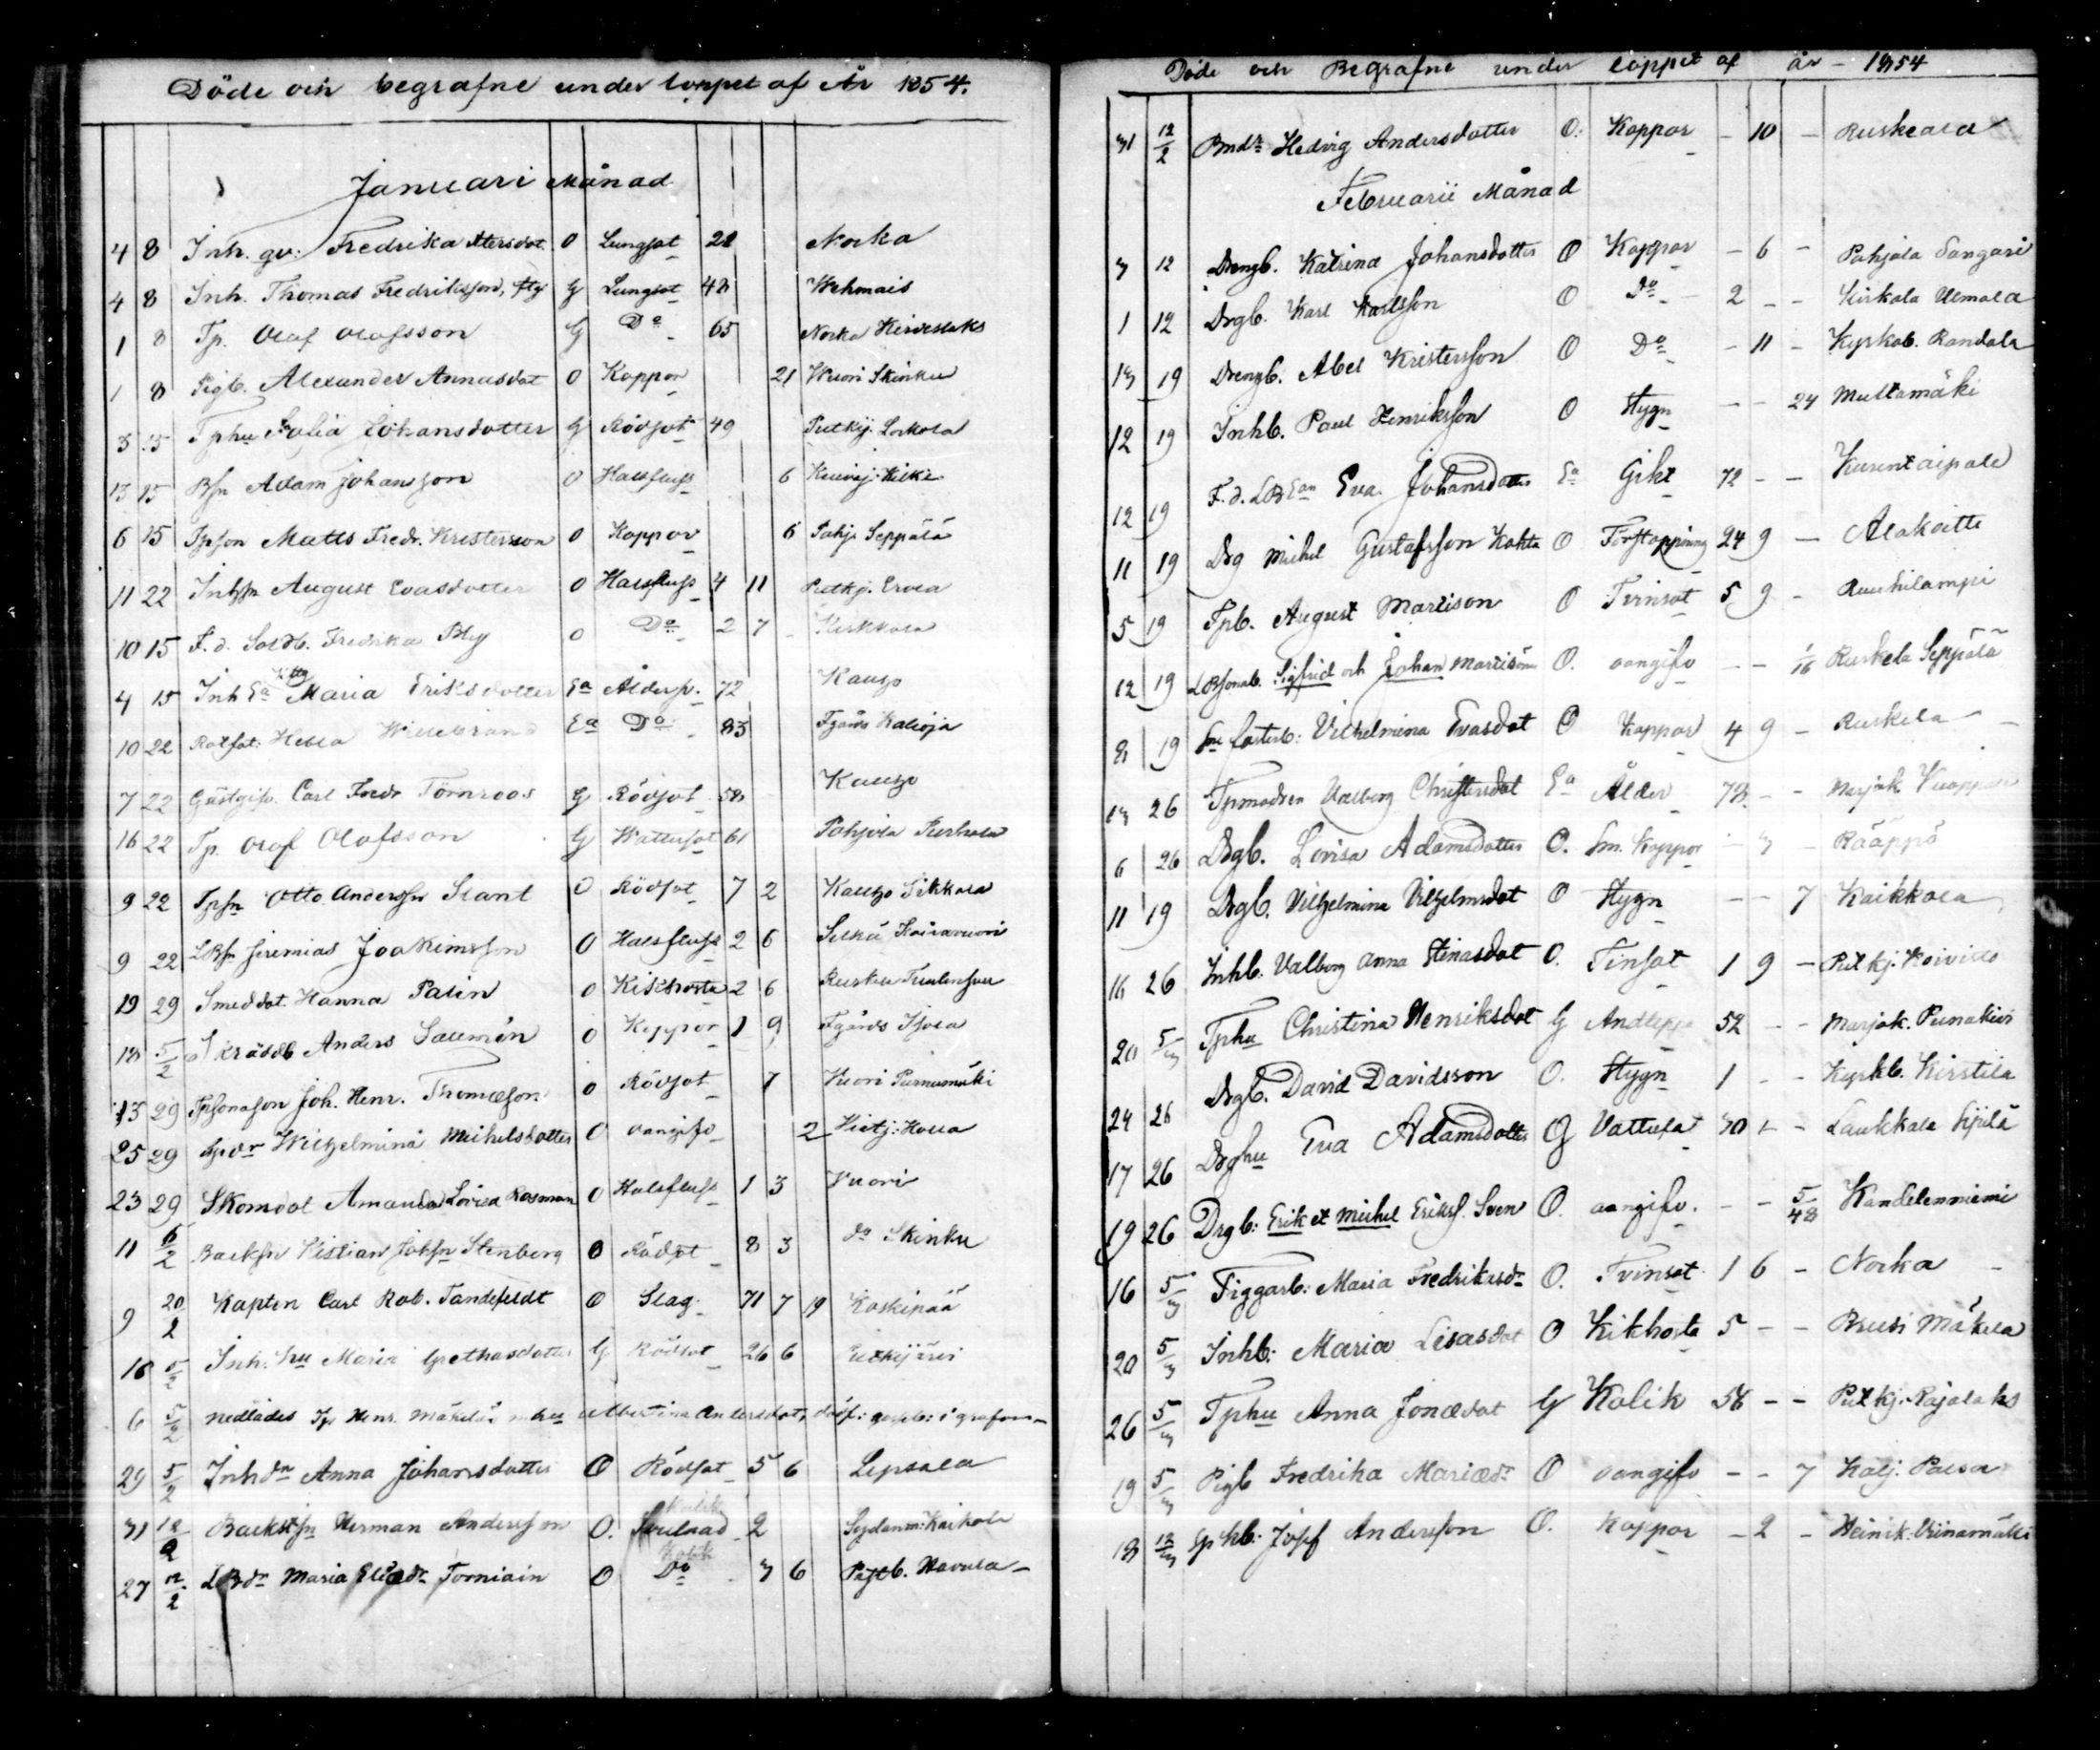 Döde och begrafne under loppet af År 1854.
Januari Månad
4 8 Inh. gu: Fredrika Atersdot. O Lungsot 21 Norka
4 8 Inh. Thomas Fredriksson, ftg G Lungsot 48 Wehmais
1 8 Tp. Olaf Olofsson G Do 65 Norka
1 8 Pigb. Alexander Annasdot O Koppor 21 Wuori Skinku
3 15 Tphu Julia Johansdotter G Rödsot 49 Putkij.
13 15 Adam Johansson O Halsfluss 6
6 15 Tpson Matts Fredr. Kristersson O Koppor 6 Pohj. Seppälä
11 22 August Evasdotter O Halsfluss 4 11 Putkj. Erola
10 15 F.d. Soldb. Fredrika Bly O Do 2 7 Kirkkola
4 15 Inh Ea Maria Eriksdotter Ea Ålder 72 Kauzo
10 22 Hella Willebrand Ea Do 83 Fgårds
7 22 Gästgifv. Carl Fredr Törnroos G Rödsot 58 Kauzo
16 22 Tp. Olof Olofsson G Wattusot 61 Pohjola
9 22 Tpsn Otto Anderssn Slant O Rödsot 7 2 Kauzo Sikkola
9 22 LBsn Jeremias Joakimsson O Halsfluss 2 6
19 29 Smeddot. Hanna Palin O Kikhosta 2 6
18 5/2 Skräddb Anders Salmén O Koppor 1 9 Fgårds Isola
13 29 Tpsonason Joh. Henr. Thomasson O Rödsot 7 Wuori
25 29 Wilhelmina Michelsdotter O oangifv 2 Hietj: Holla
23 29 Skomdot Amanda Lovisa Rosman O Halsfluss 1 3 Vuori
11 5/2 Backsn Kistian Johsn Stenberg O Rödsot 8 3 do Skinku
9 20/2 Kapten Carl Rob. Tandefeldt O Slag 71 7 19 Koskipää
16 5/2 Inh. hu Maria Grethasdotter G Rödsot 26 6 Putkijärvi
6 5/2 nedlades Tp Henr. Mäkelä Albertina Andersdot, i grafven
29 5/2 Inhdr Anna Johansdotter O Rödsot 5 6 Lepsala
31 12/2 Backstsn Herman Andersson O. Kolik 2 Sydanm: Kaikola
27 12/2 LBdr Maria Torniain O Kolik Do 3 6 Havula
Döde och Begrafne under loppet af år 1854
31 12/2 Bmdr Hedvig Andersdotter O. Koppor - 10 - Ruskeala
Februarii Månad
3 12 Drengb. Katrina Johansdotter O Koppor - 6 - Pohjola Sangari
1 12 Drgb. Karl Karlsson O Do - 2 - - Kirkola Uemala
13 19 Drengb. Abel Kristersson O Do - 11 - Kyrkob. Randala
12 19 Inhb. Paul Henriksson O Stygn - - 24 Mustamäki
12 19 F.d. LB Ean Eva Johansdotter Ea Gikt 72 - - Kurentaipale
11 19 Drg Michel Gustafsson Kohta O Förstoppning 24 9 - Alakoitti
5 19 Tpb. August Martison O Tvinsot 5 9 - Ruuhilampi
12 19 LBsonab. Sigfrid och Johan Martison O. oangifv - - 1/16 Ruskela Seppälä
8 19 Sme fosterb: Vilhelmina Evasdot O Koppor 4 9 - Ruskela
13 26 Tpmodren Valborg Christersdot Ea Ålder 78 - - Marjok
6 26 Drgb. Lovisa Adamsdotter O. Sm. Koppor - 3 - Rääppö
11 19 Drgb. Vilhelmina Vilhelmsdot O Stygn - - 7 Kaikkola
16 26 Inhb. Valborg Anna Stinasdot O. Tinsot 1 9 - Putkj. Koivisto
20 5/3 Tphu Christina Henriksdot G Andtäppa 52 - - Marjok. Punakivi
24 26 Drgb. David Davidsson O. Stygn 1 - - Kyrkb. Kirstila
17 26 Drghu Eva Adamsdotter G Vattusot 30 - - Laukkala Lijilä
19 26 Drgb: Erik et Michel Erikss. Sven O. oangifv. - - 5/48 Kandelenniemi
16 5/3 Tiggarb: Maria Fredriksdr O. Tvinsot 1 6 - Norka
20 5/3 Inhb: Maria Lisasdot O Kikhosta 5 - - Brusi Mäkelä
26 5/3 Tphu Anna Jonædot G Kolik 58 - - Putkj. Rajalaks
19 5/3 Pigb Fredrika Mariædr O oangifv - - 7 Kälj. Paesa
18 12/3 Josef Andersson O. Koppor - 2 - Heinik: Viinamäki